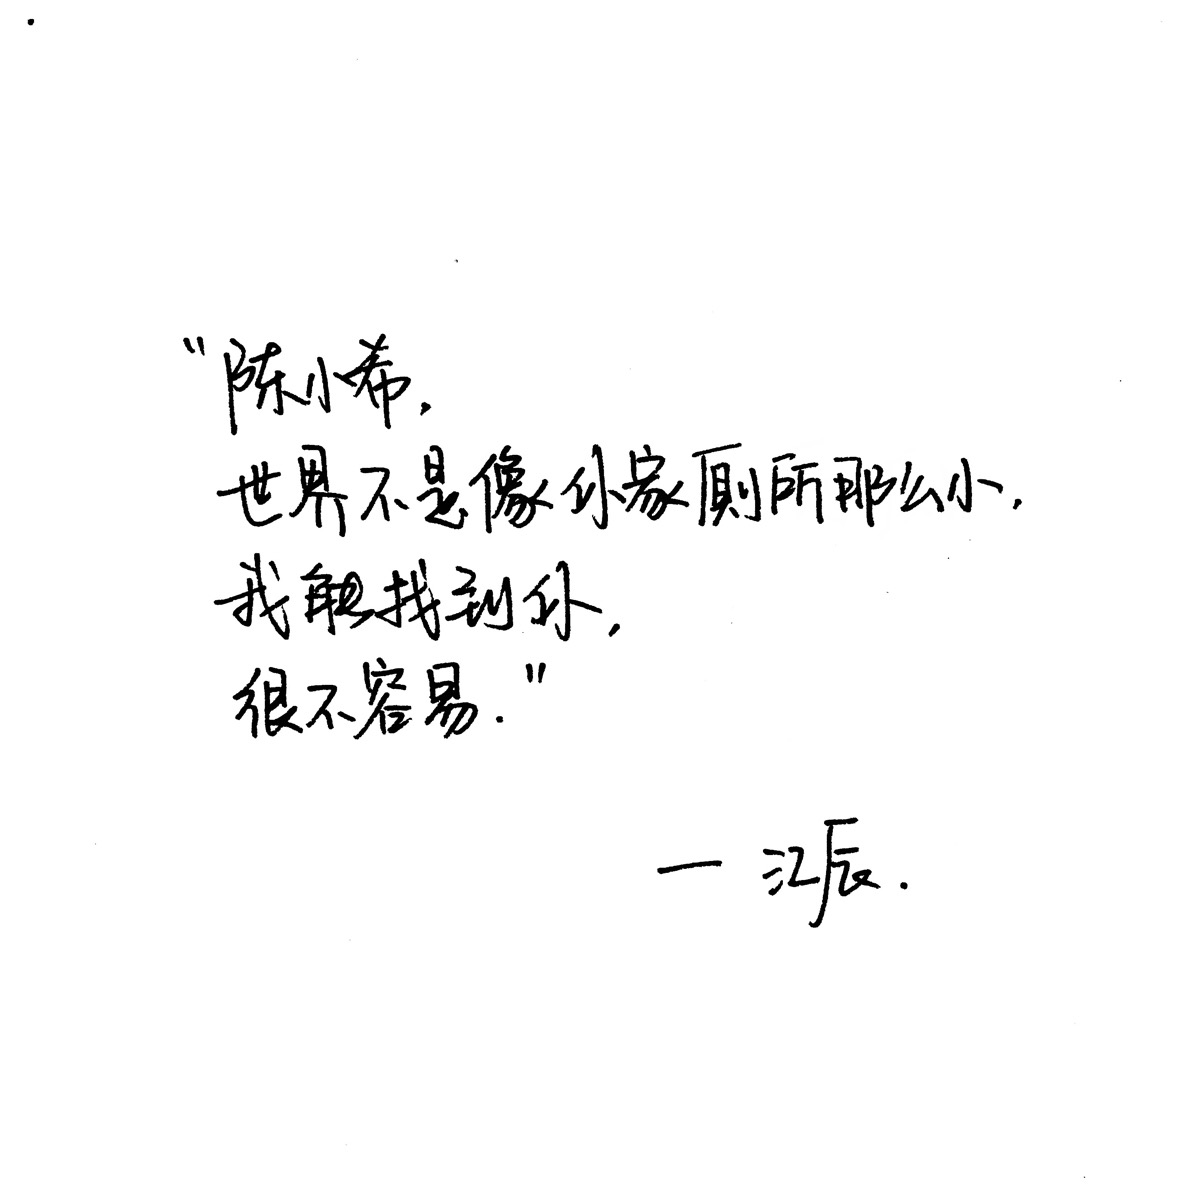 "陈小希，
世界不是像你家厕所那么小，
我能找到你，
很不容易."
一 江辰.